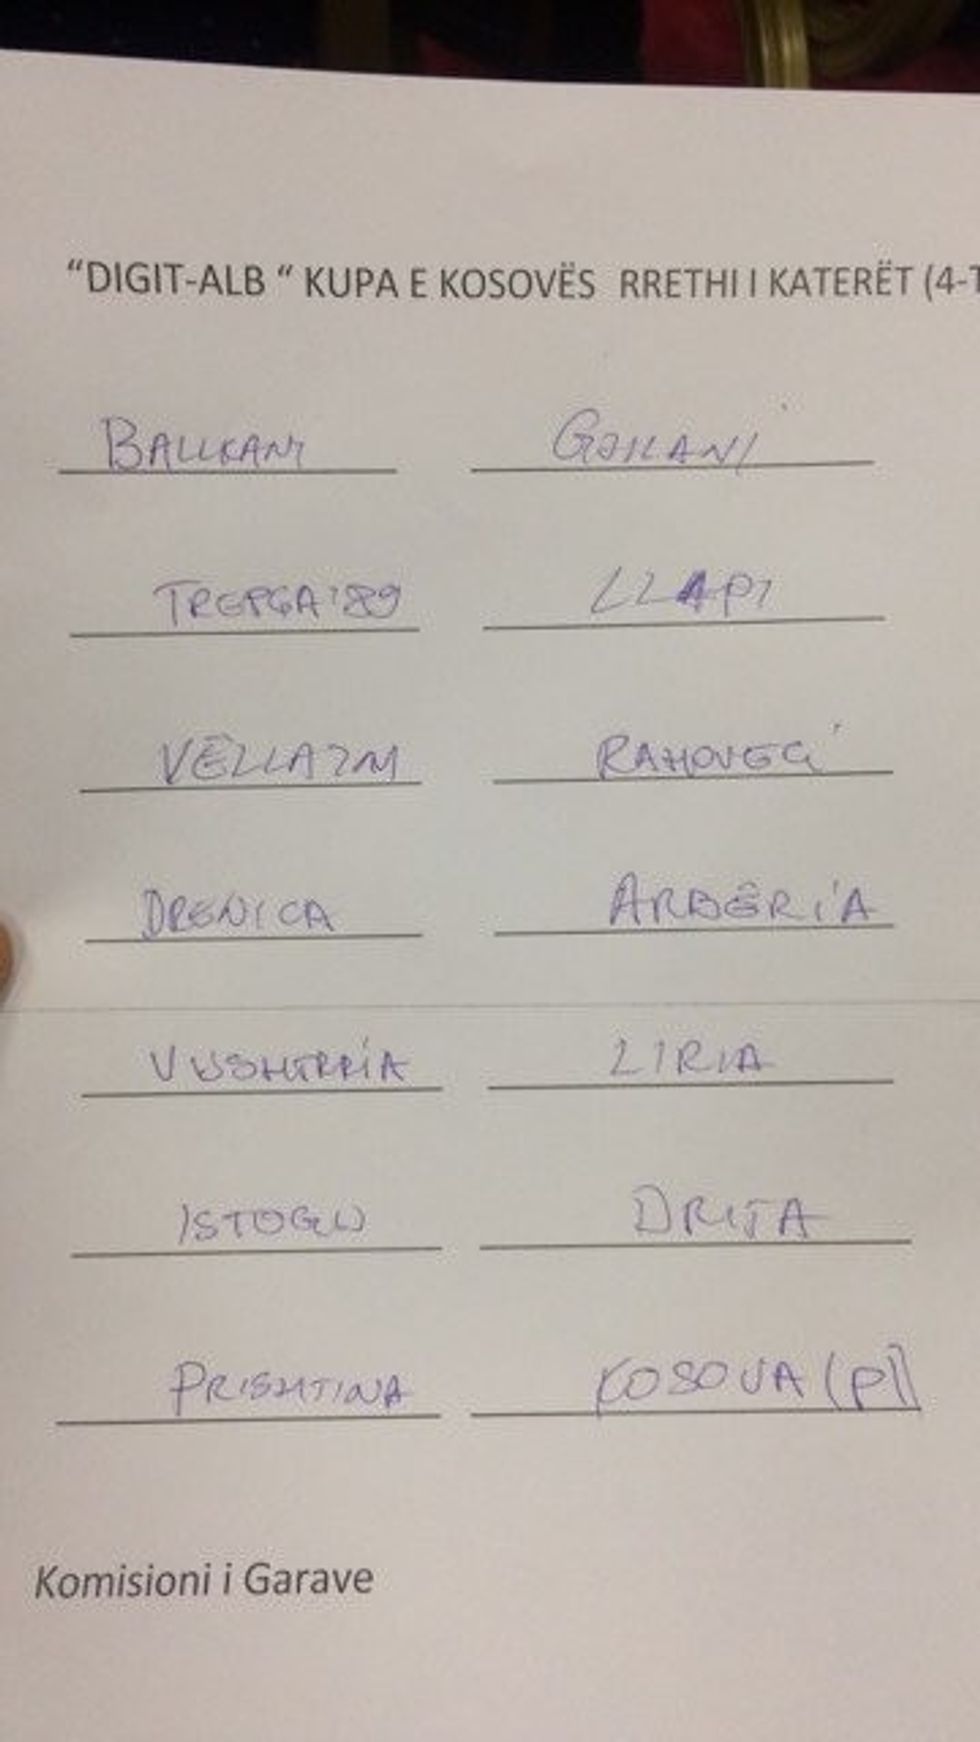 "DIGIT-ALB " KUPA E KOSOVËS RRETHI I KATERËT (4-T
BALLKANI GJILANI
TREPÇA'89 LLAPI
VËLLAZNI RAHOVECI
DRENICA ARBËRIA
VUSHTRRIA LIRIA
ISTOGU DRITA
PRISHTINA KOSOVA (PR)
Komisioni i Garave